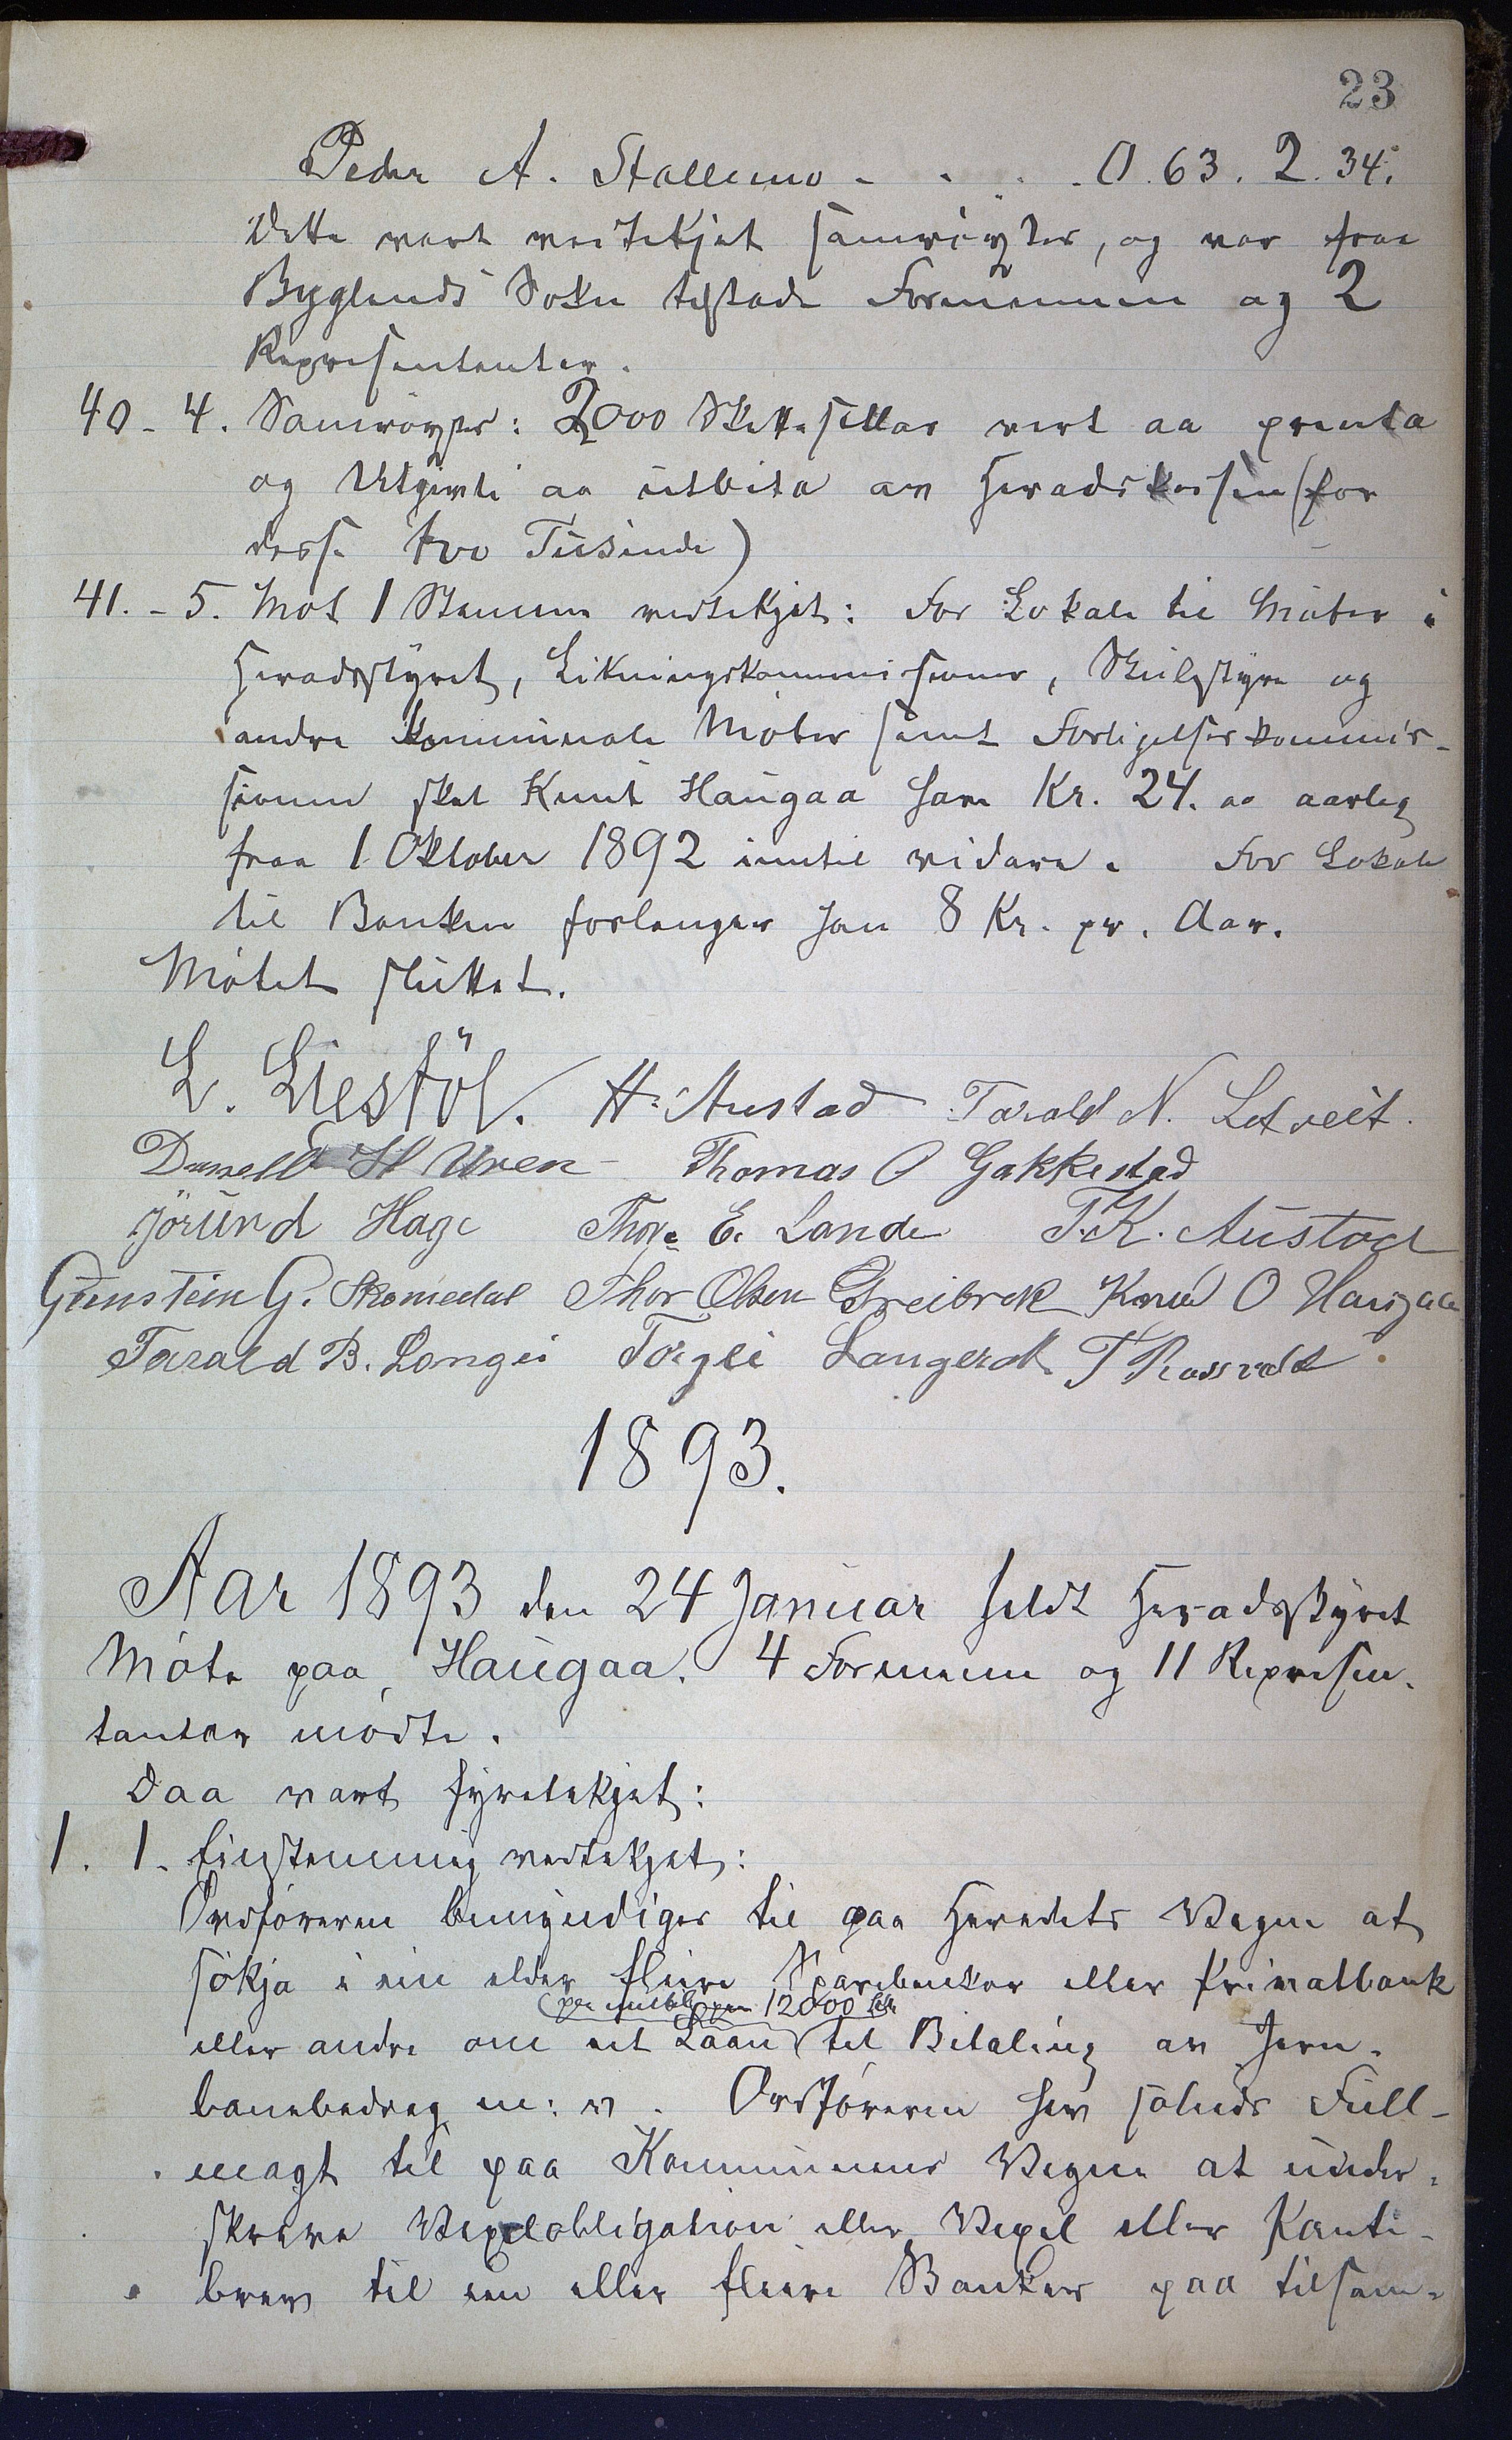 23
Peder A. Stallemo - - . . 0.63. 2.34.
Dette vart vedtekjet samrøystes, og var fraa
Byglands Sokn tilstade Formannen og 2
Representanter.
40 - 4. Samrøystes: 2000 Skattesetlar vert aa prenta
og Utgivti aa utbeta av Heradskassen (for
desse two Tusinde)
41. - 5. Mot 1 Stemme vedtekjet: For Lokale til Møter i
Heradsstyret, Likningskommissioner, Skulestyre og
andre kommunale Møter samt Forligelseskommis-
sionen skal Knut Haugaa hava Kr. 24. aa aarleg
fraa 1 Oktober 1892 inntil vidare. For Lokale
til Banken forlanger han 8 Kr. pr. Aar.
Møtet sluttet.
L. Liestöl. H. Austad Tarald N. Lotveit.
Danell H Uren Thomas O Gakkestad
Jörund Hage Thor E. Lande T.K. Austad
Gunstein G. Skomedal Thor Olsen Greibrok Knud O Haugaa
Tarald B. Longei Torgei Langerak T Rossvold
1893.
Aar 1893 den 24 Januar heldt Heradsstyret
Møte paa Haugaa. 4 Formenn og 11 Represen-
tanter møtte.
Daa vart fyretekjet:
1. 1. Einstemmig vedtekjet:
Ordføraren bemyndiges til paa Heradets Vegne at
søkja i ein elder fleire Sparebanker eller Privatbank
(paa inntil 12000 Kr
eller andre om eit Laan til Betaling av Jern-
banebedrag m: v. Ordføraren hev soleids Full-
magt til paa Kommunens Vegne at under-
skrive Vexelobligation eller Vexel eller Panti-
brev til ein eller fleire Banker paa tilsam-